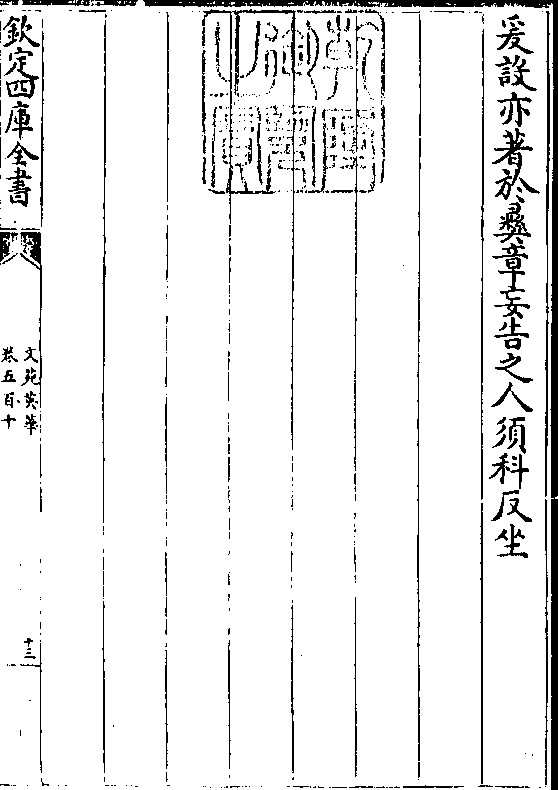 爰設亦著於彞章妄告之人須科反坐
乾隆御覽之寶
欽定四庫全書
文苑英華
卷五百十
十三